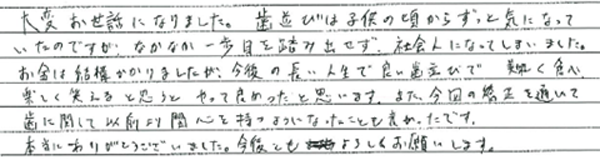 大変お世話になりました。歯並びは子供の頃からずっと気になって
いたのですが、なかなか一歩目を踏み出せず、社会人になってしまいました。
お金は結構かかりましたが、今後の長い人生で良い歯並びで 美味しく食べ
楽しく笑えると思うと やって良かったと思います。また、今回の矯正を通いて
歯に関して以前より関心を持つようになったことも良かったです。
本当にありがとうございました。今後ともよろしくお願いします。